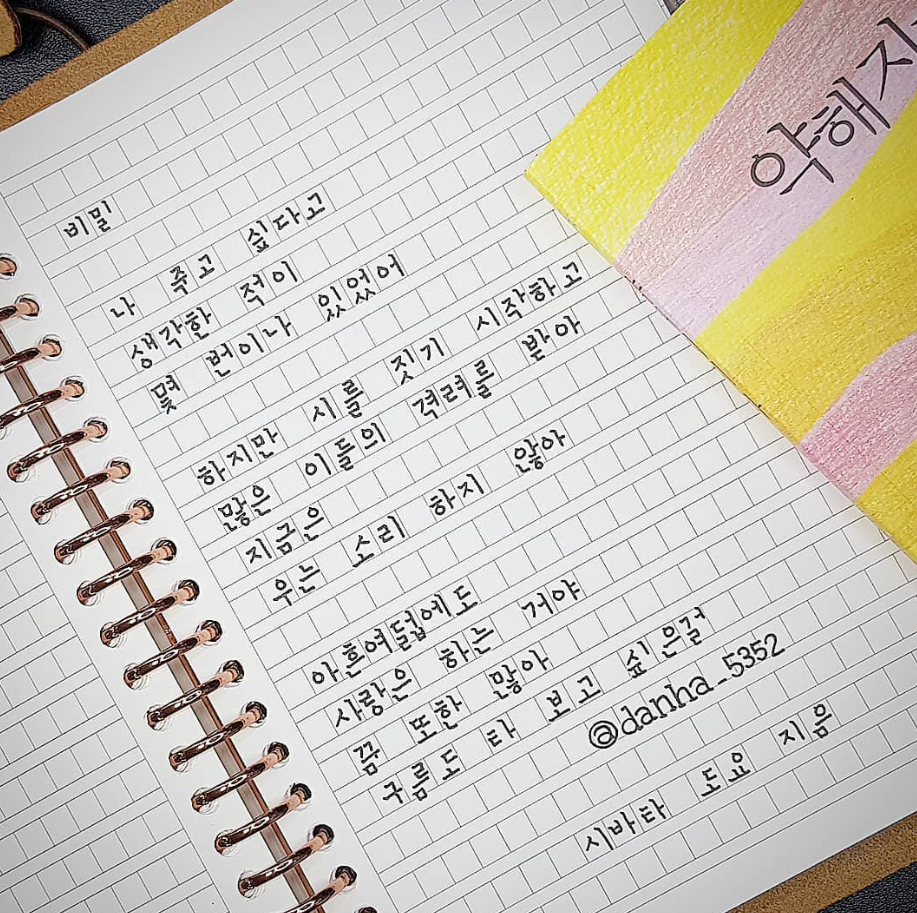 비밀
나 죽고 싶다고
생각한 적이
몇 번이나 있었어
하지만 시를 짓기 시작하고
많은 이들의 격려를 받아
지금은
우는 소리 하지 않아
아흔여덟에도
사랑은 하는 거야
꿈 또한 많아
구름도 타 보고 싶은걸
@danha_5352
시바타 도요 지음
약해지